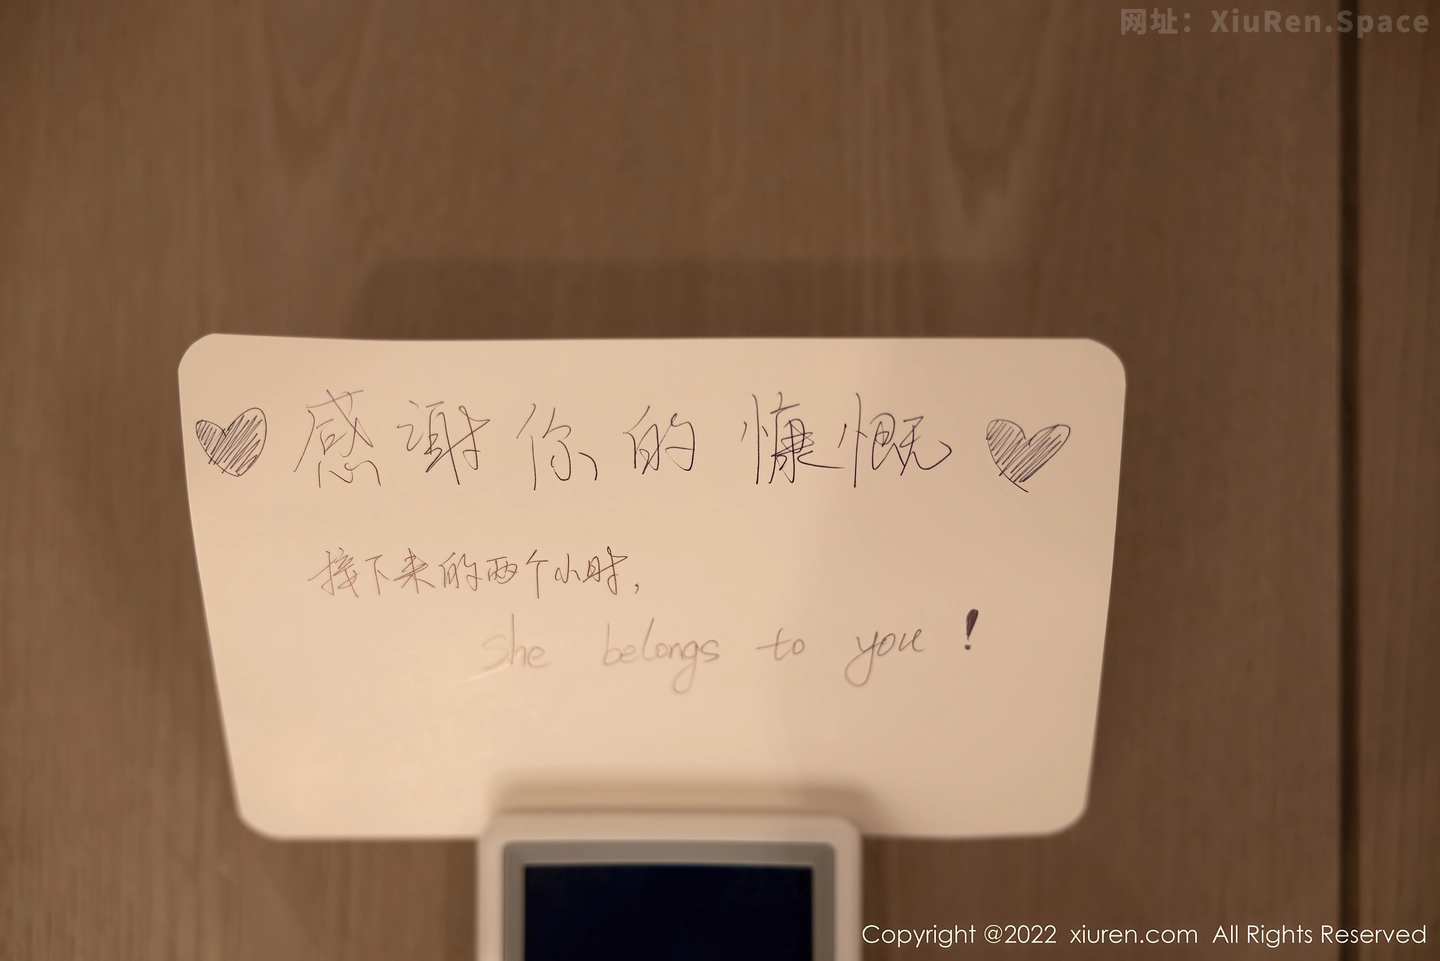 网址：XiuRen.Space
感谢你的慷慨
接下来的两个小时,
she belongs to you!
Copyright @2022 xiuren.com All Rights Reserved